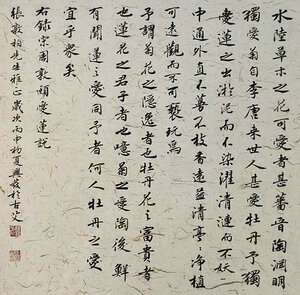 水陸草木之花可愛者甚蕃晉陶淵明
獨愛菊自李唐來世人甚愛牡丹予獨
愛蓮之出淤泥而不染濯清漣而不妖
中通外直不蔓不枝香遠益清亭々淨植
可遠觀而不可褻玩焉
予謂菊花之隱逸者也牡丹花之富貴者
也蓮花之君子者也噫菊之愛陶後鮮
有聞蓮之愛同予者何人牡丹之愛
宜乎衆矣
右錄宋周敦頤愛蓮説
張敦柏先生雅正歲次丙申初夏興發於古